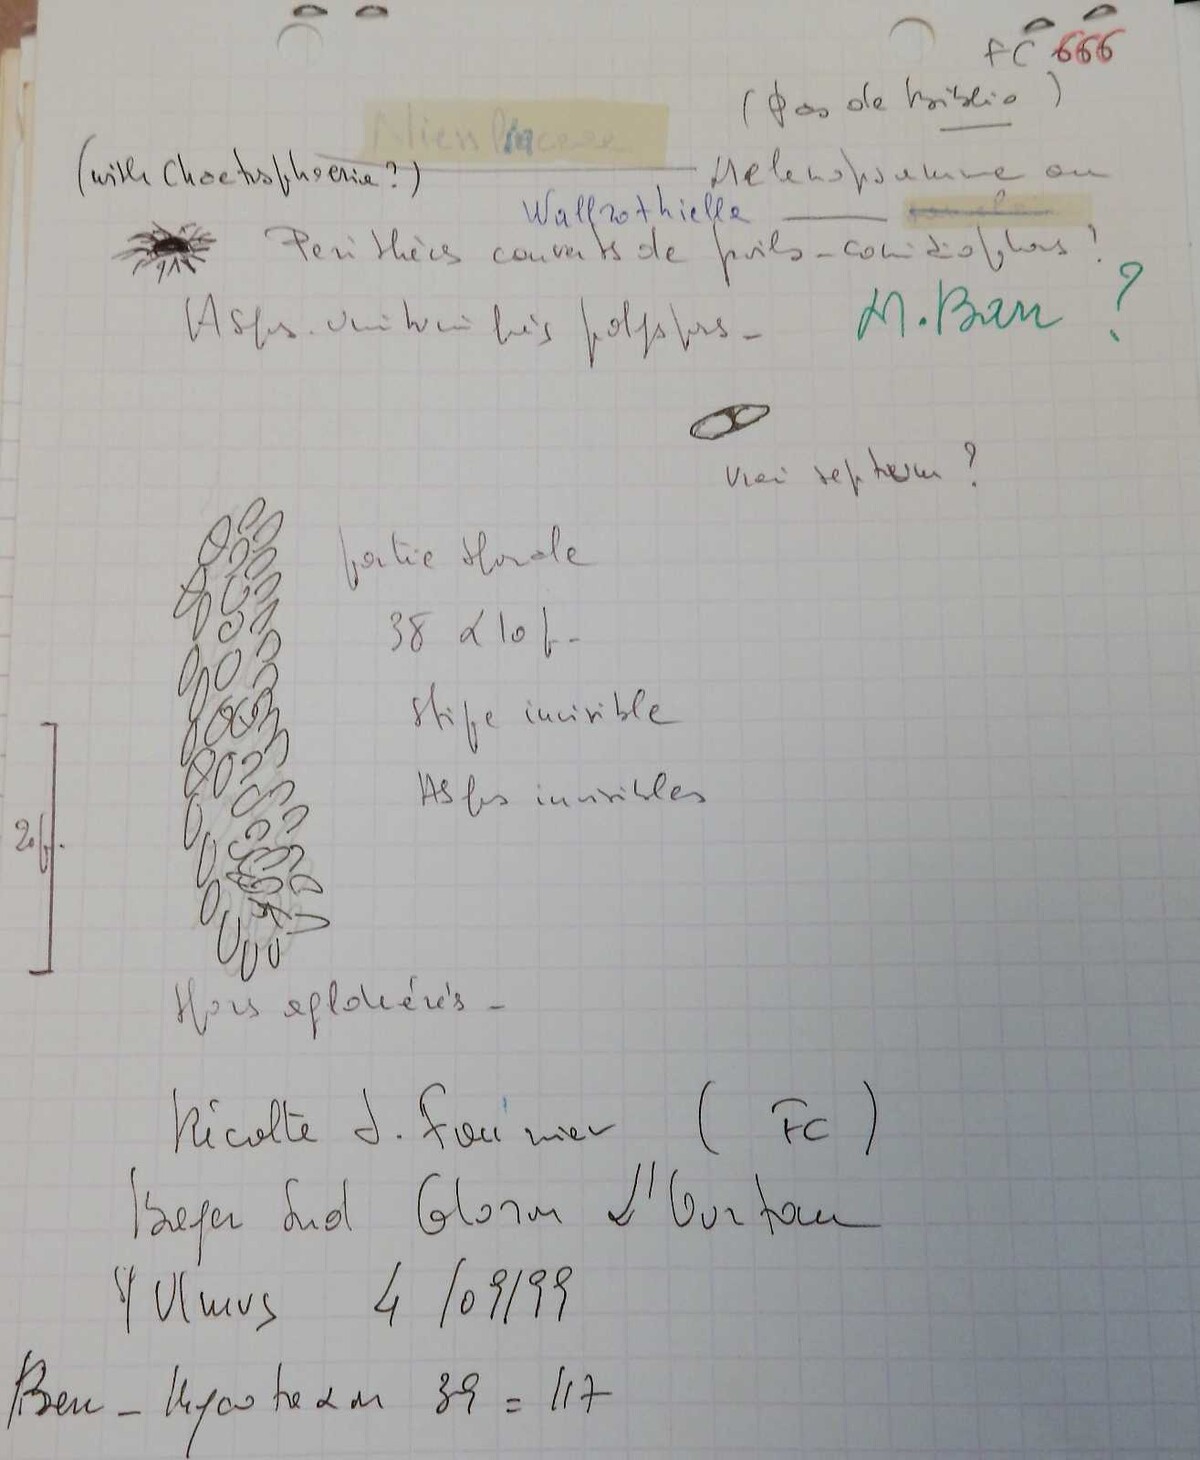 FC 666
(pas de biblio)
Niessliaceae
(with Chaetosphaeria?)
Melanopsamma ou
Wallrothiella
Périthèces couverts de poils-conidiophores!
Asques unituniqués polyspores -
M. Barr ?
vrai septum ?
partie sporale
38 x 10 µ -
stipe invisible
Asques invisibles
20 µ.
spores agglomérés -
Récolte J. Fournier (FC)
Sud
S/ Ulmus 4/09/99
Barr - Mycotaxon 39 = 117